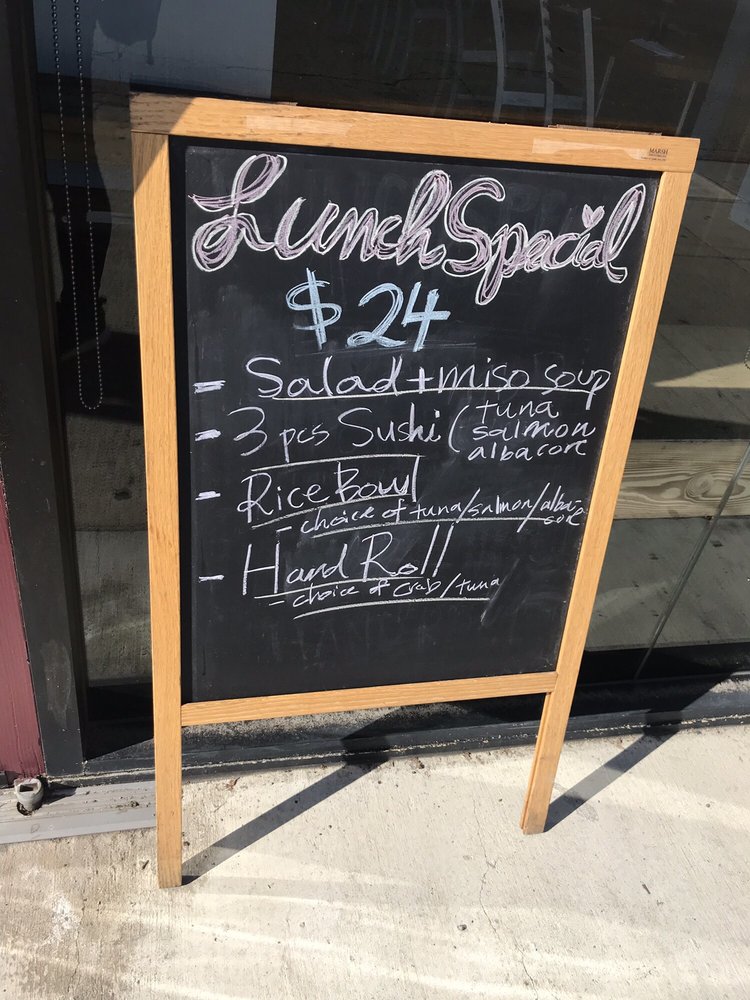 MARSH
Lunch Special
$24
- Salad + miso soup
- 3 pcs Sushi (tuna
salmon
albacore
- Rice Bowl
- choice of tuna/salmon/alba-
core
- Hand Roll
- choice of crab/tuna